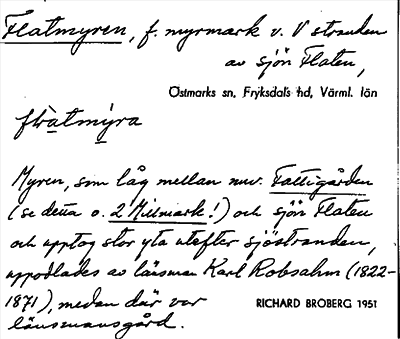 Flatmyren, f. myrmark v. V stranden
av sjön Flaten,
Östmarks sn, Fryksdals hd, Värml. län
Myren, som låg mellan nuv. Fattigården
(se detta o. 2 Millmark!) och sjön Flaten
och upptog stor yta utefter sjöstranden,
uppodlades av länsman Karl Robsahm (1822-
1871), medan där var
länsmansgård.
RICHARD BROBERG 1951